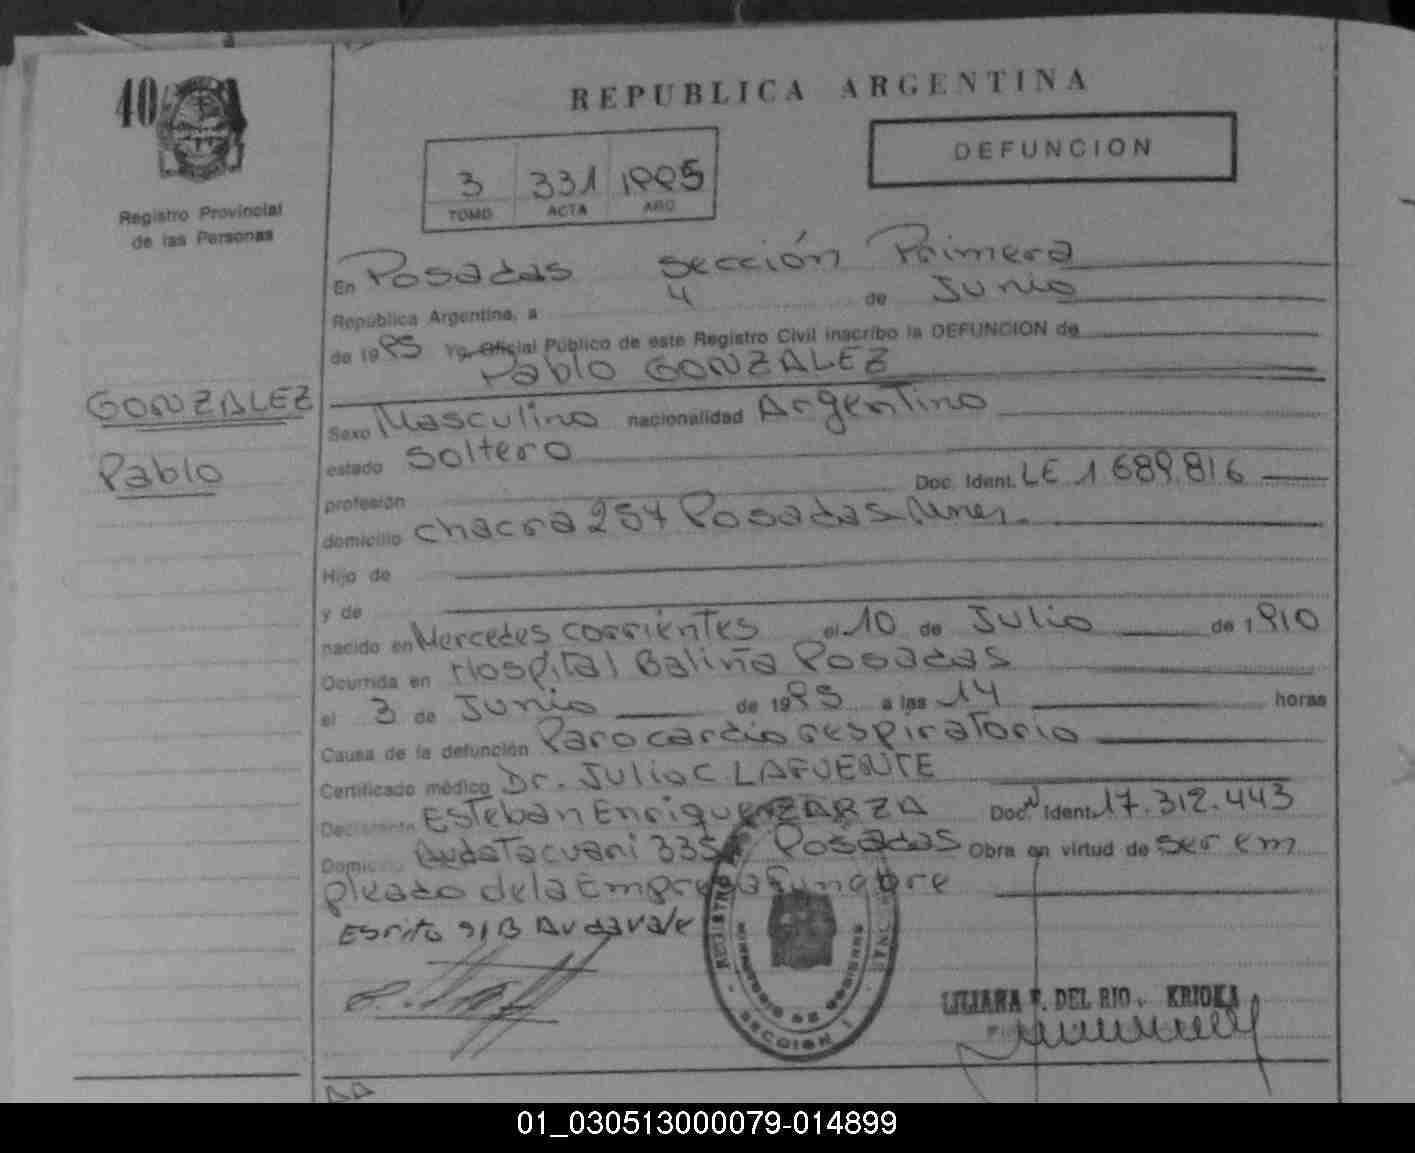 40
REPUBLICA ARGENTINA
DEFUNCION
3 331 1995
TOMO ACTA AÑO
Registro Provincial
de las Personas
En Posadas sección Primera
República Argentina, a 4 de Junio
de 1995 Yo Oficial Público de este Registro Civil inscribo la DEFUNCION de
Pablo GONZALEZ
GONZALEZ
Pablo
Sexo Masculino nacionalidad Argentino
estado Soltero
profesión Doc. Ident. LE 1.689.816
domicilio chacra 257 Posadas
Hijo de
y de
nacido en Mercedes Corrientes el 10 de Julio de 1910
Ocurrida en Hospital Baliña Posadas
el 3 de Junio de 1995 a las 14 horas
Causa de la defunción Paro cardio respiratorio
Certificado médico Dr. Julio C. LAFUENTE
Declarante Esteban Enrique ZARZA Doc. Ident. 17.312.443
Domicilio 335 Posadas Obra en virtud de ser em
pleado de la Empresa Funebre
Escrito S/B
REGISTRO
SECCION 1
LILIANA F. DEL RIO KRIOKA
01_030513000079-014899